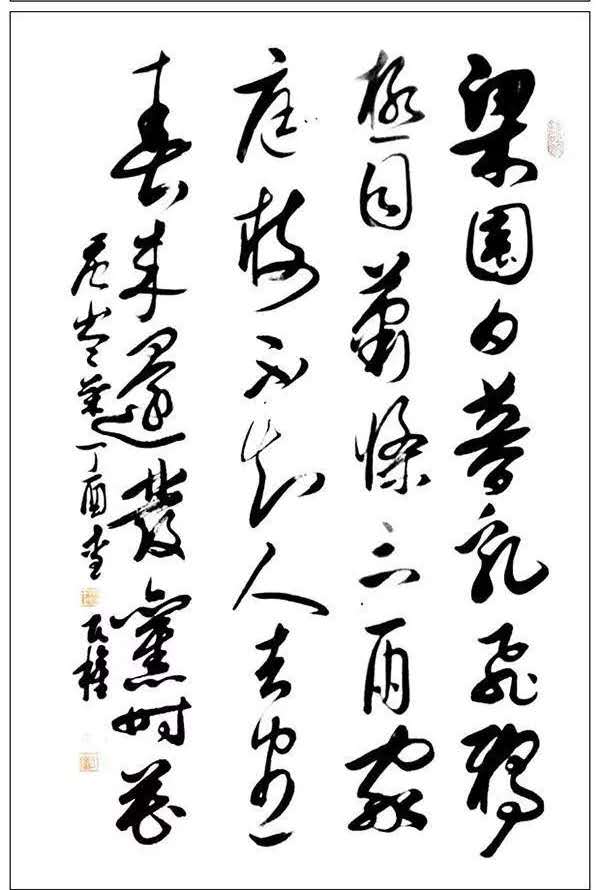 梁園日暮乱飛鴉
極目蕭條三兩家
庭樹不知人去盡
春來還發舊時花
丁酉